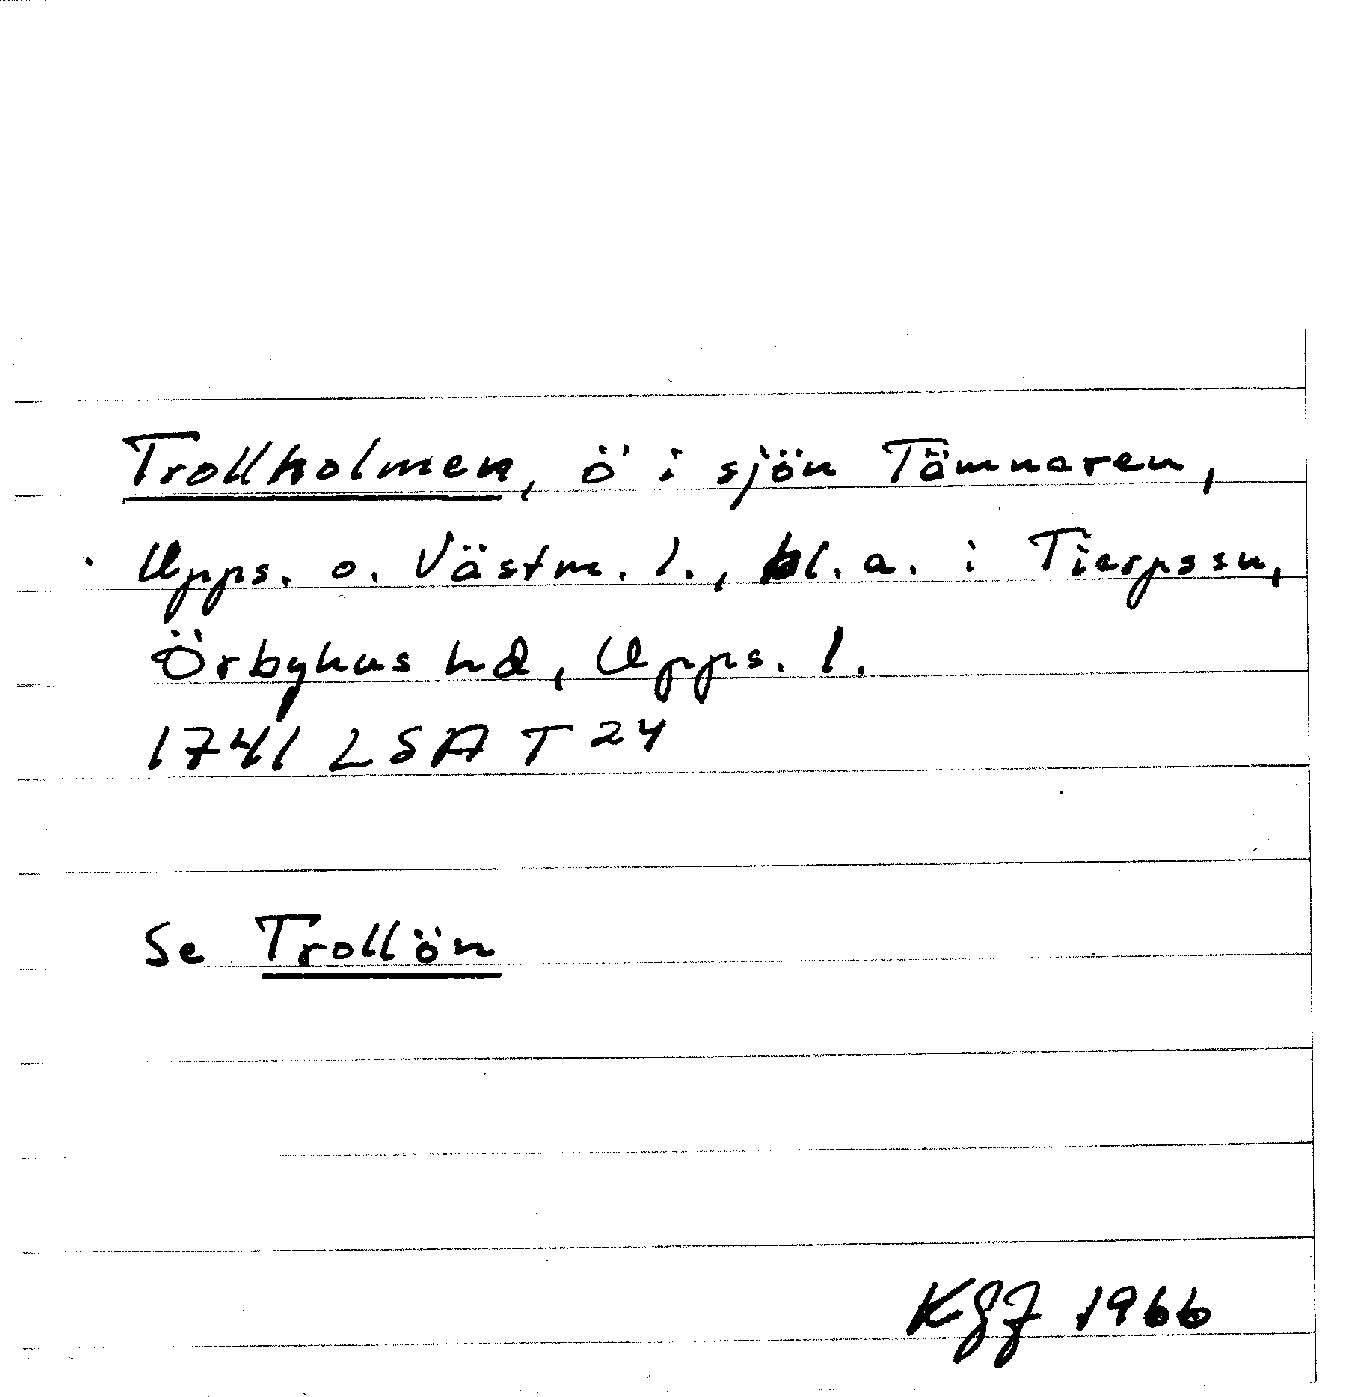 Trollholmen, ö i sjön Tämnaren,
Upps. o. Västm. l., bl. a. i Tierpssn,
Örbyhus hd, Upps. l.
1741 LSA T 24
Se Trollön
KGJ 1966